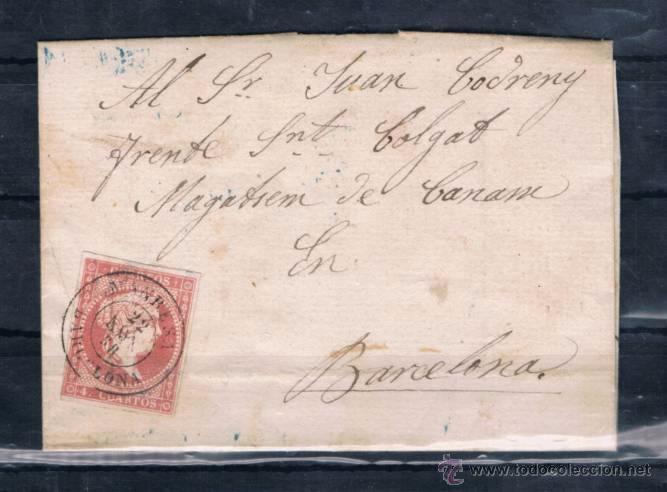 Al Sr. Juan Codreny
frente Snt. Colgat
Magatsem de Canam
En
Barcelona.
CUARTOS
MANRESA
22
60
BARCELONA
4 CUARTOS
www.todocoleccion.net